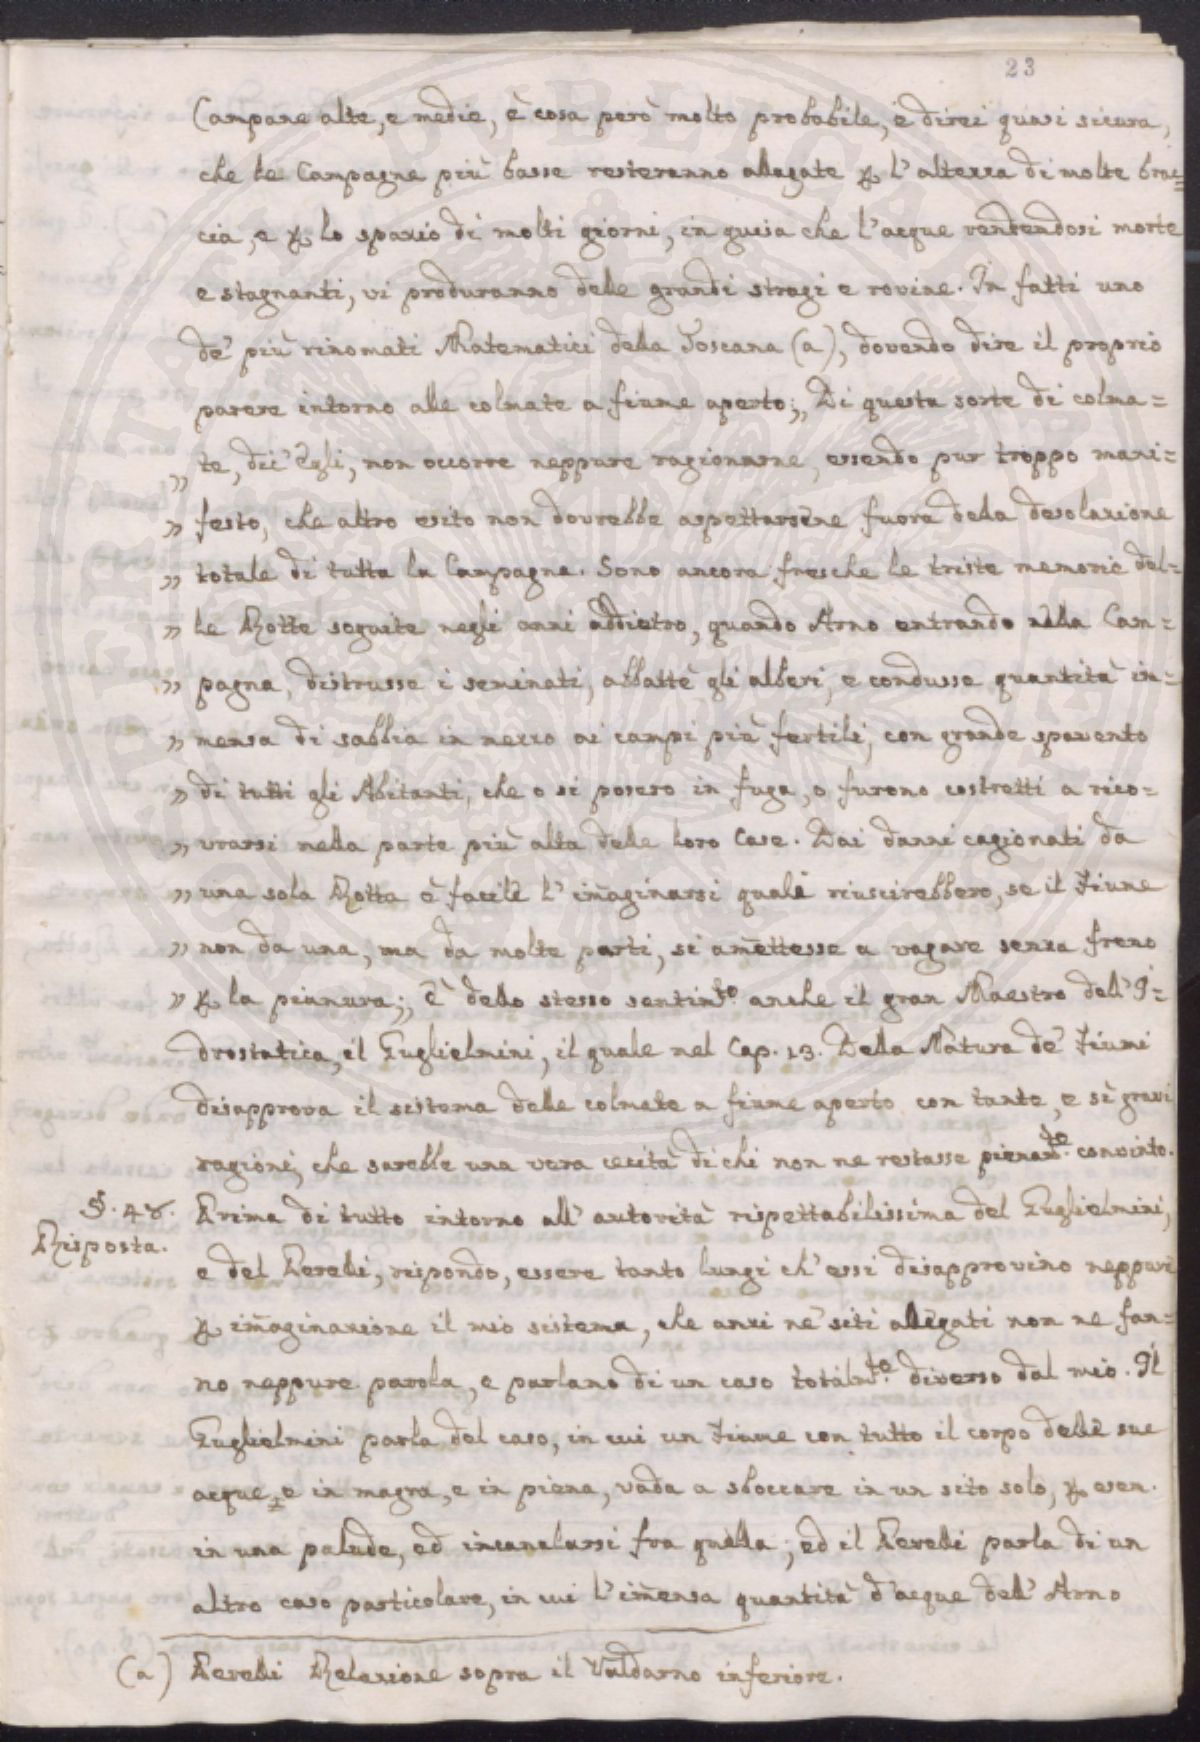 23
Campane alte, e medie, è cosa però molto probabile, e direi quasi sicura,
che le Campagne più basse resteranno allagate p l'altezza di molte brac=
cia, e p lo spazio di molti giorni, in guisa che l'acque rendendosi morte
e stagnanti, vi produranno delle grandi stragi e rovine. In fatti uno
de' più rinomati Matematici della Toscana (a), dovendo dire il proprio
parere intorno alle colmate a fiume aperto; „ Di questa sorte di colma=
„ te, dic' Egli, non occorre neppure ragionarne, essendo pur troppo mani=
„ festo, che altro esito non dovrebbe aspettarsene fuora della desolazione
„ totale di tutta la Campagna. Sono ancora fresche le triste memorie del=
„ le Rotte seguite negli anni addietro, quando Arno entrando nella Cam=
„ pagna, distrusse i seminati, abbattè gli alberi, e condusse quantità im=
„ mensa di sabbia in mezzo ai campi più fertili, con grande spavento
„ di tutti gli Abitanti, che o si posero in fuga, o furono costretti a rico=
„ vrarsi nella parte più alta delle loro Case. Dai danni cagionati da
„ una sola Rotta è facile l' im̄aginarsi quali riuscirebbero, se il Fiume
„ non da una, ma da molte parti, si am̄ettesse a vagare senza freno
„ p la pianura; „ È dello stesso sentim.to anche il gran Maestro dell' I=
drostatica, il Guglielmini, il quale nel Cap. 13. Della Natura de' Fiumi
disapprova il sistema delle colmate a fiume aperto con tante, e sì gravi
ragioni, che sarebbe una vera cecità di chi non ne restasse pienam.te convinto.
§. 48.
Risposta.
Prima di tutto intorno all' autorità rispettabilissima del Guglielmini,
e del Perelli, rispondo, essere tanto lungi ch' essi disapprovino neppure
p im̄aginazione il mio sistema, che anzi ne' siti allegati non ne fan=
no neppure parola, e parlano di un caso totalm.te diverso dal mio. Il
Guglielmini parla del caso, in cui un Fiume con tutto il corpo delle sue
acque, e in magra, e in piena, vada a sboccare in un sito solo, p esem.
in una palude, ed incanalarsi fra quella; ed il Perelli parla di un
altro caso particolare, in cui l'im̄ensa quantità d'acque dell' Arno
(a) Perelli Relazione sopra il Valdarno inferiore.